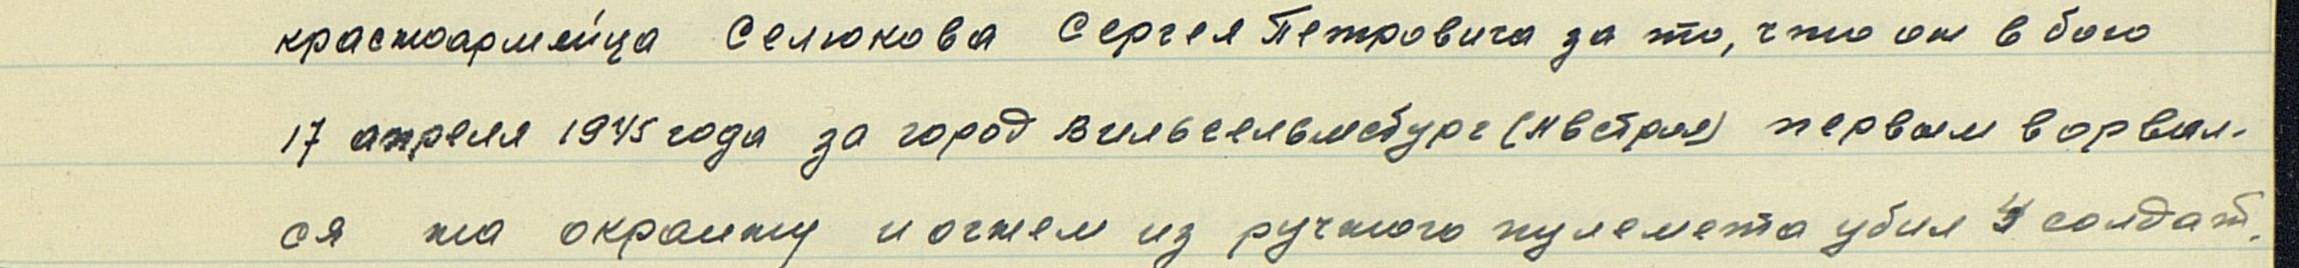 красноармейца Селюкова Сергея Петровича за то, что он в бою
17 апреля 1945 года за город Вильгельмсбург (Австрия) первым ворвал-
ся на окраину и огнем из ручного пулемета убил 4 солдат.